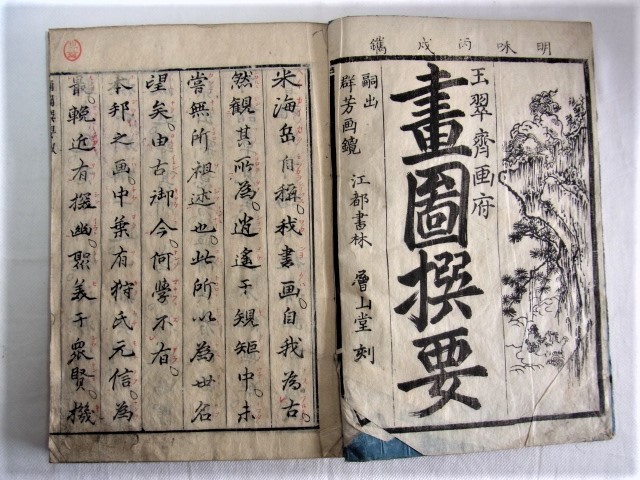 明咊丙戌鐫
玉翠齋画府
畫圖撰要
嗣出
群芳画鏡
江都書林 層山堂 刻
米海岳自稱我書画自我為古
然観其所為逍遙于規矩中未
嘗無所祖述也此所以為世名
望矣由古御今何學不有
本邦之画中葉有狩氏元信為
最輓近有探幽聚美于衆賢機